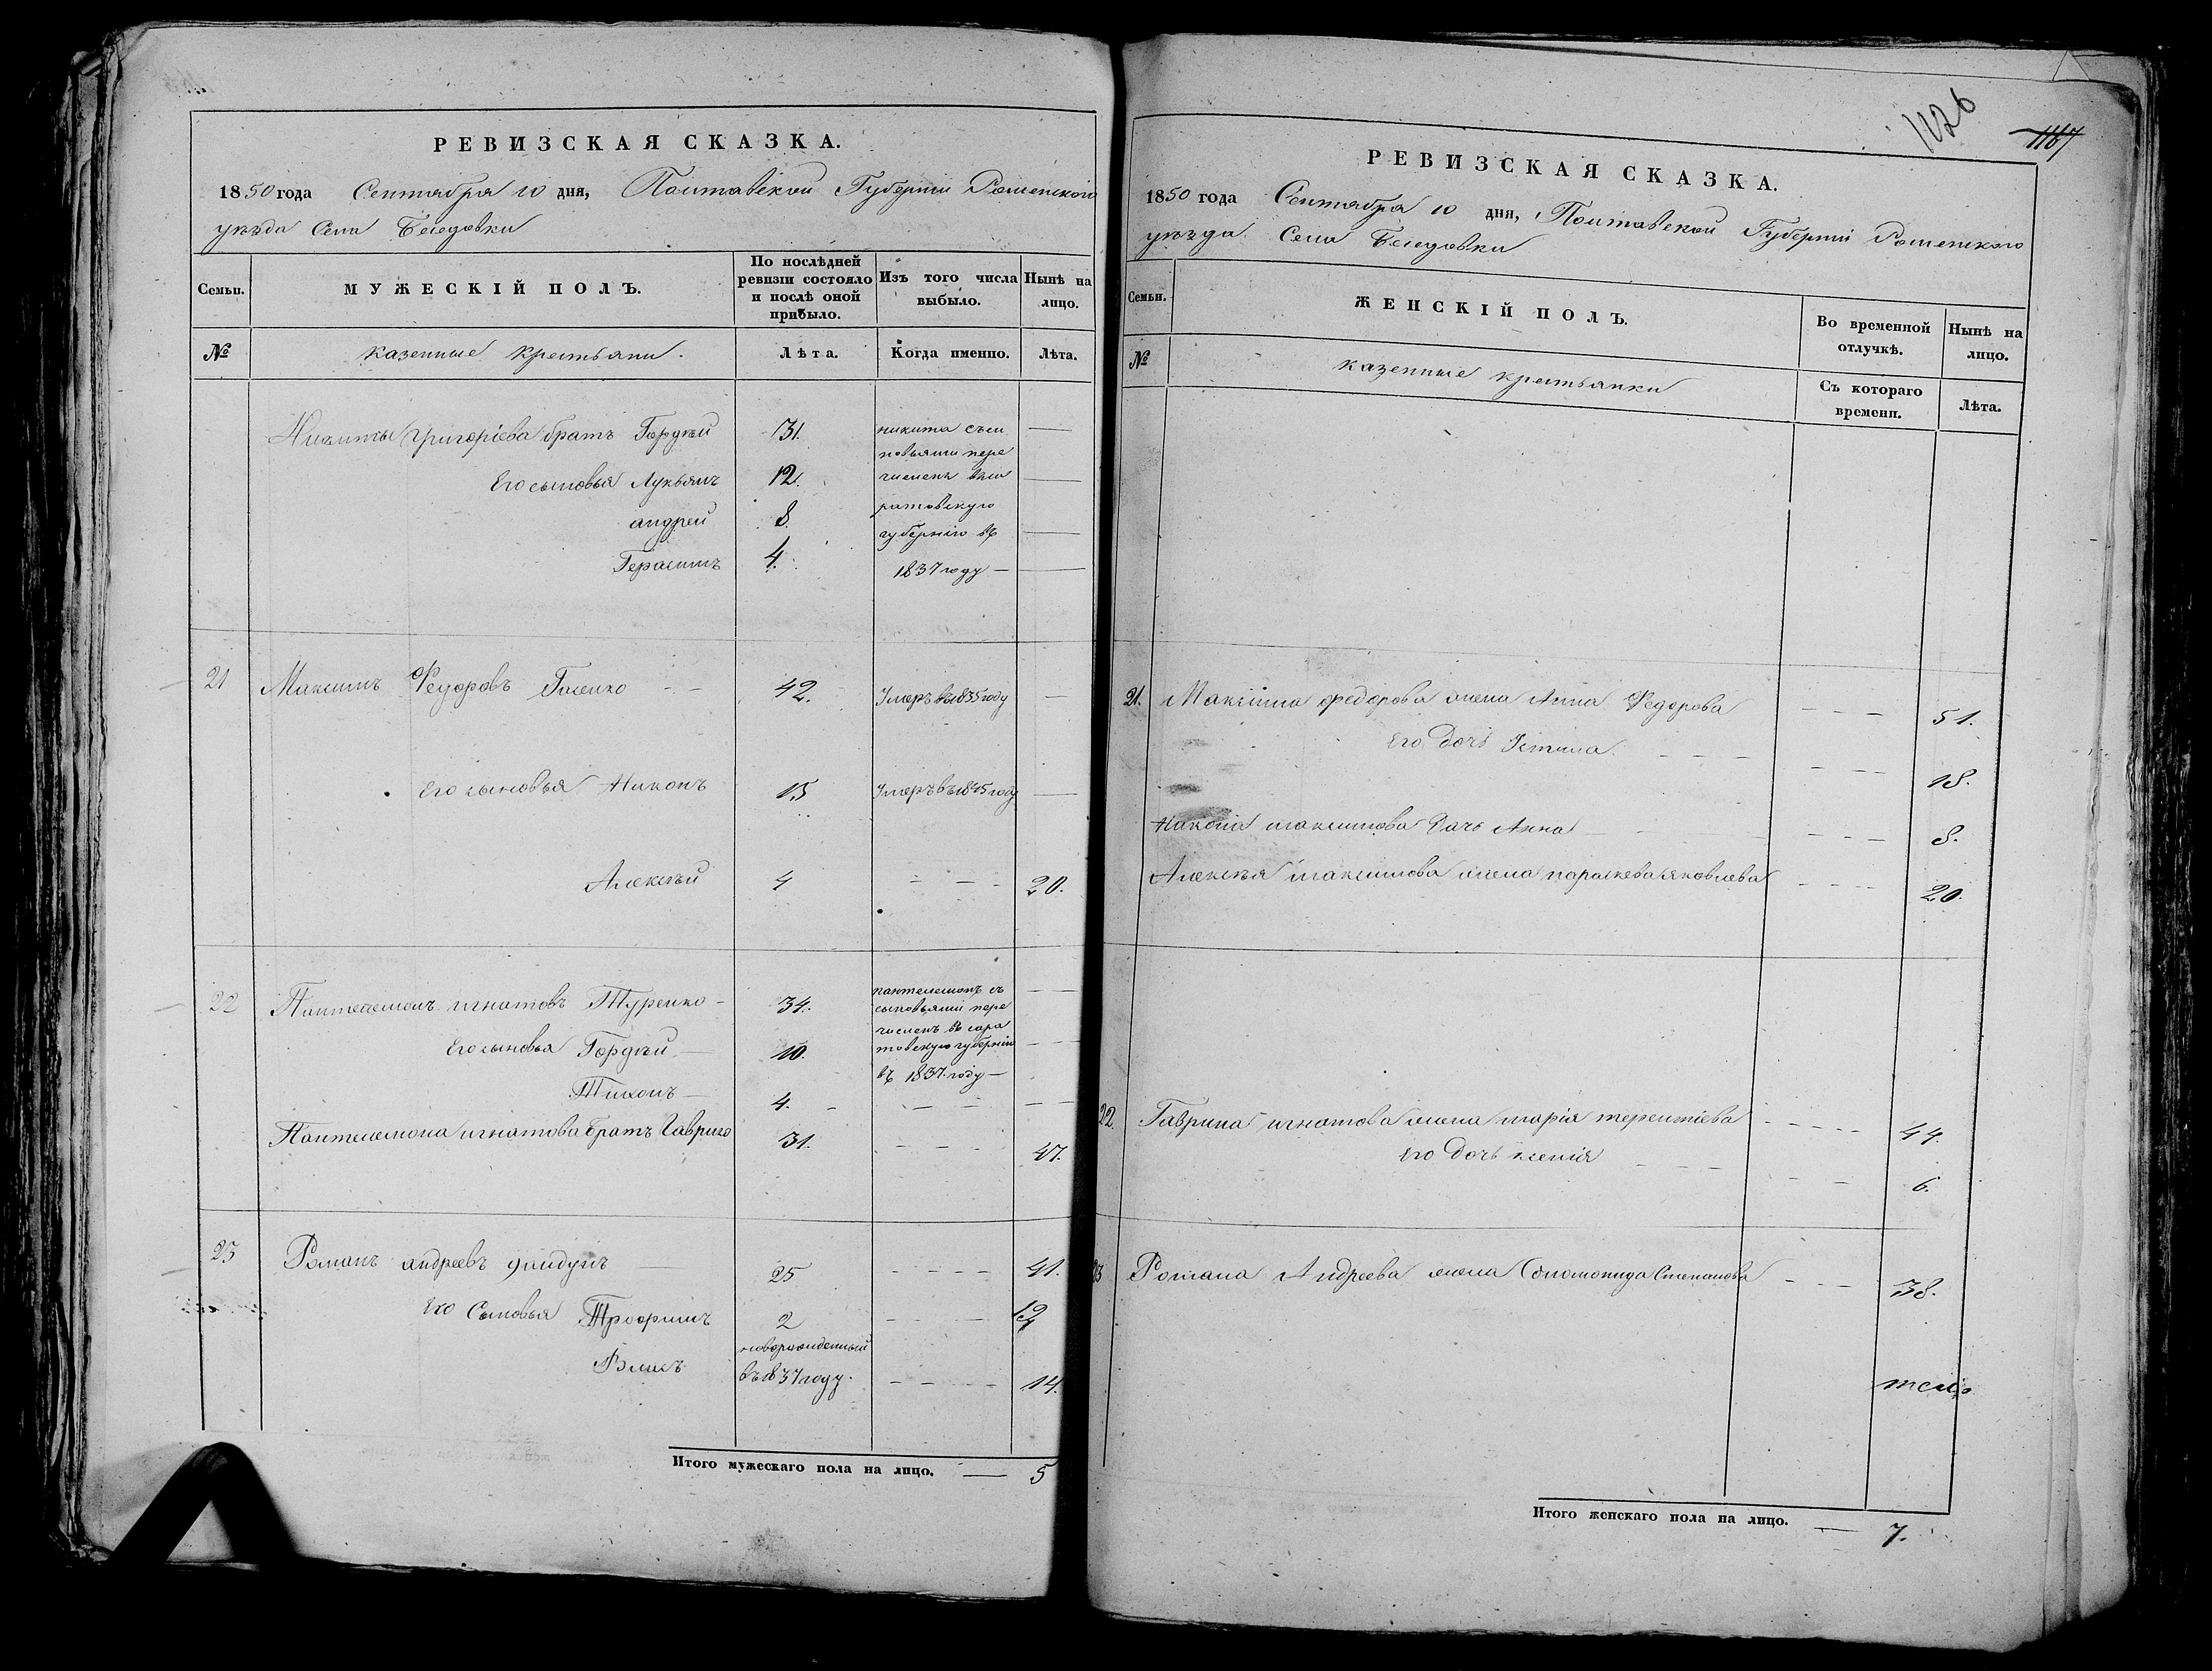 РЕВИЗСКАЯ СКАЗКА.
1850 года Сентября 10 дня, Полтавской Губернии Роменского
уезда Села Беседовки
Семьи.
МУЖЕСКІЙ ПОЛЪ.
По послѣдней ревизіи состояло и послѣ оной прибыло.
Изъ того числа выбыло.
Нынѣ на лицо.
№
казенные крестьяни.
Лѣта.
Когда именно.
Лѣта.
Никиты Григоріева братъ Гордѣй 31. никита съсы
новьями пере
Его сыновья Лукьянъ 12. численъ вса
ратовскую
андрей 8. губернію въ
Герасимъ 4. 1837 году —
21 Максимъ Федоровъ 42. Умеръ въ 1835 году —
Его сыновья Никонъ 15 Умеръ въ 1845 году —
Алексѣй 4 — — — 20.
22 Пантелемонъ игнатовъ Туренко 34. пантелемонъ съ
сыновьями пере
численъ въ сара
Его сыновья Гордѣй 10. товскую губернію
въ 1837 году —
Тихонъ 4. — — —
Пантелемона игнатова братъ Гаврило 31. — — — 47.
23 Романъ андреевъ 25 — — — — 41.
Его Сыновья Трофимъ 2 — — — 19
новорожденный
Власъ въ 1837 году. — — — — 14.
Итого мужескаго пола на лицо. — 5
1126
1167
РЕВИЗСКАЯ СКАЗКА.
1850 года Сентября 10 дня, Полтавской Губерніи Роменского
уезда Села Беседовки
Семьи.
ЖЕНСКІЙ ПОЛЪ.
Во временной отлучкѣ.
Нынѣ на лицо.
№
казенные крестьянки
Съ котораго времени.
Лѣта.
21. Максима федорова жена Анна Федорова — — — 51.
Его Дочь Устина — — — 18.
Никона максимова Дочь Анна — — — 8.
Алексѣя максимова жена параскева яковлева — — — 20.
22. Гаврила игнатова жена марія терентіева — — — 44.
Его Дочь ксенія — — — 6.
23 Романа Андреева жена Соломонида Степанова — — — 38.
Итого женскаго пола на лицо. — 7.